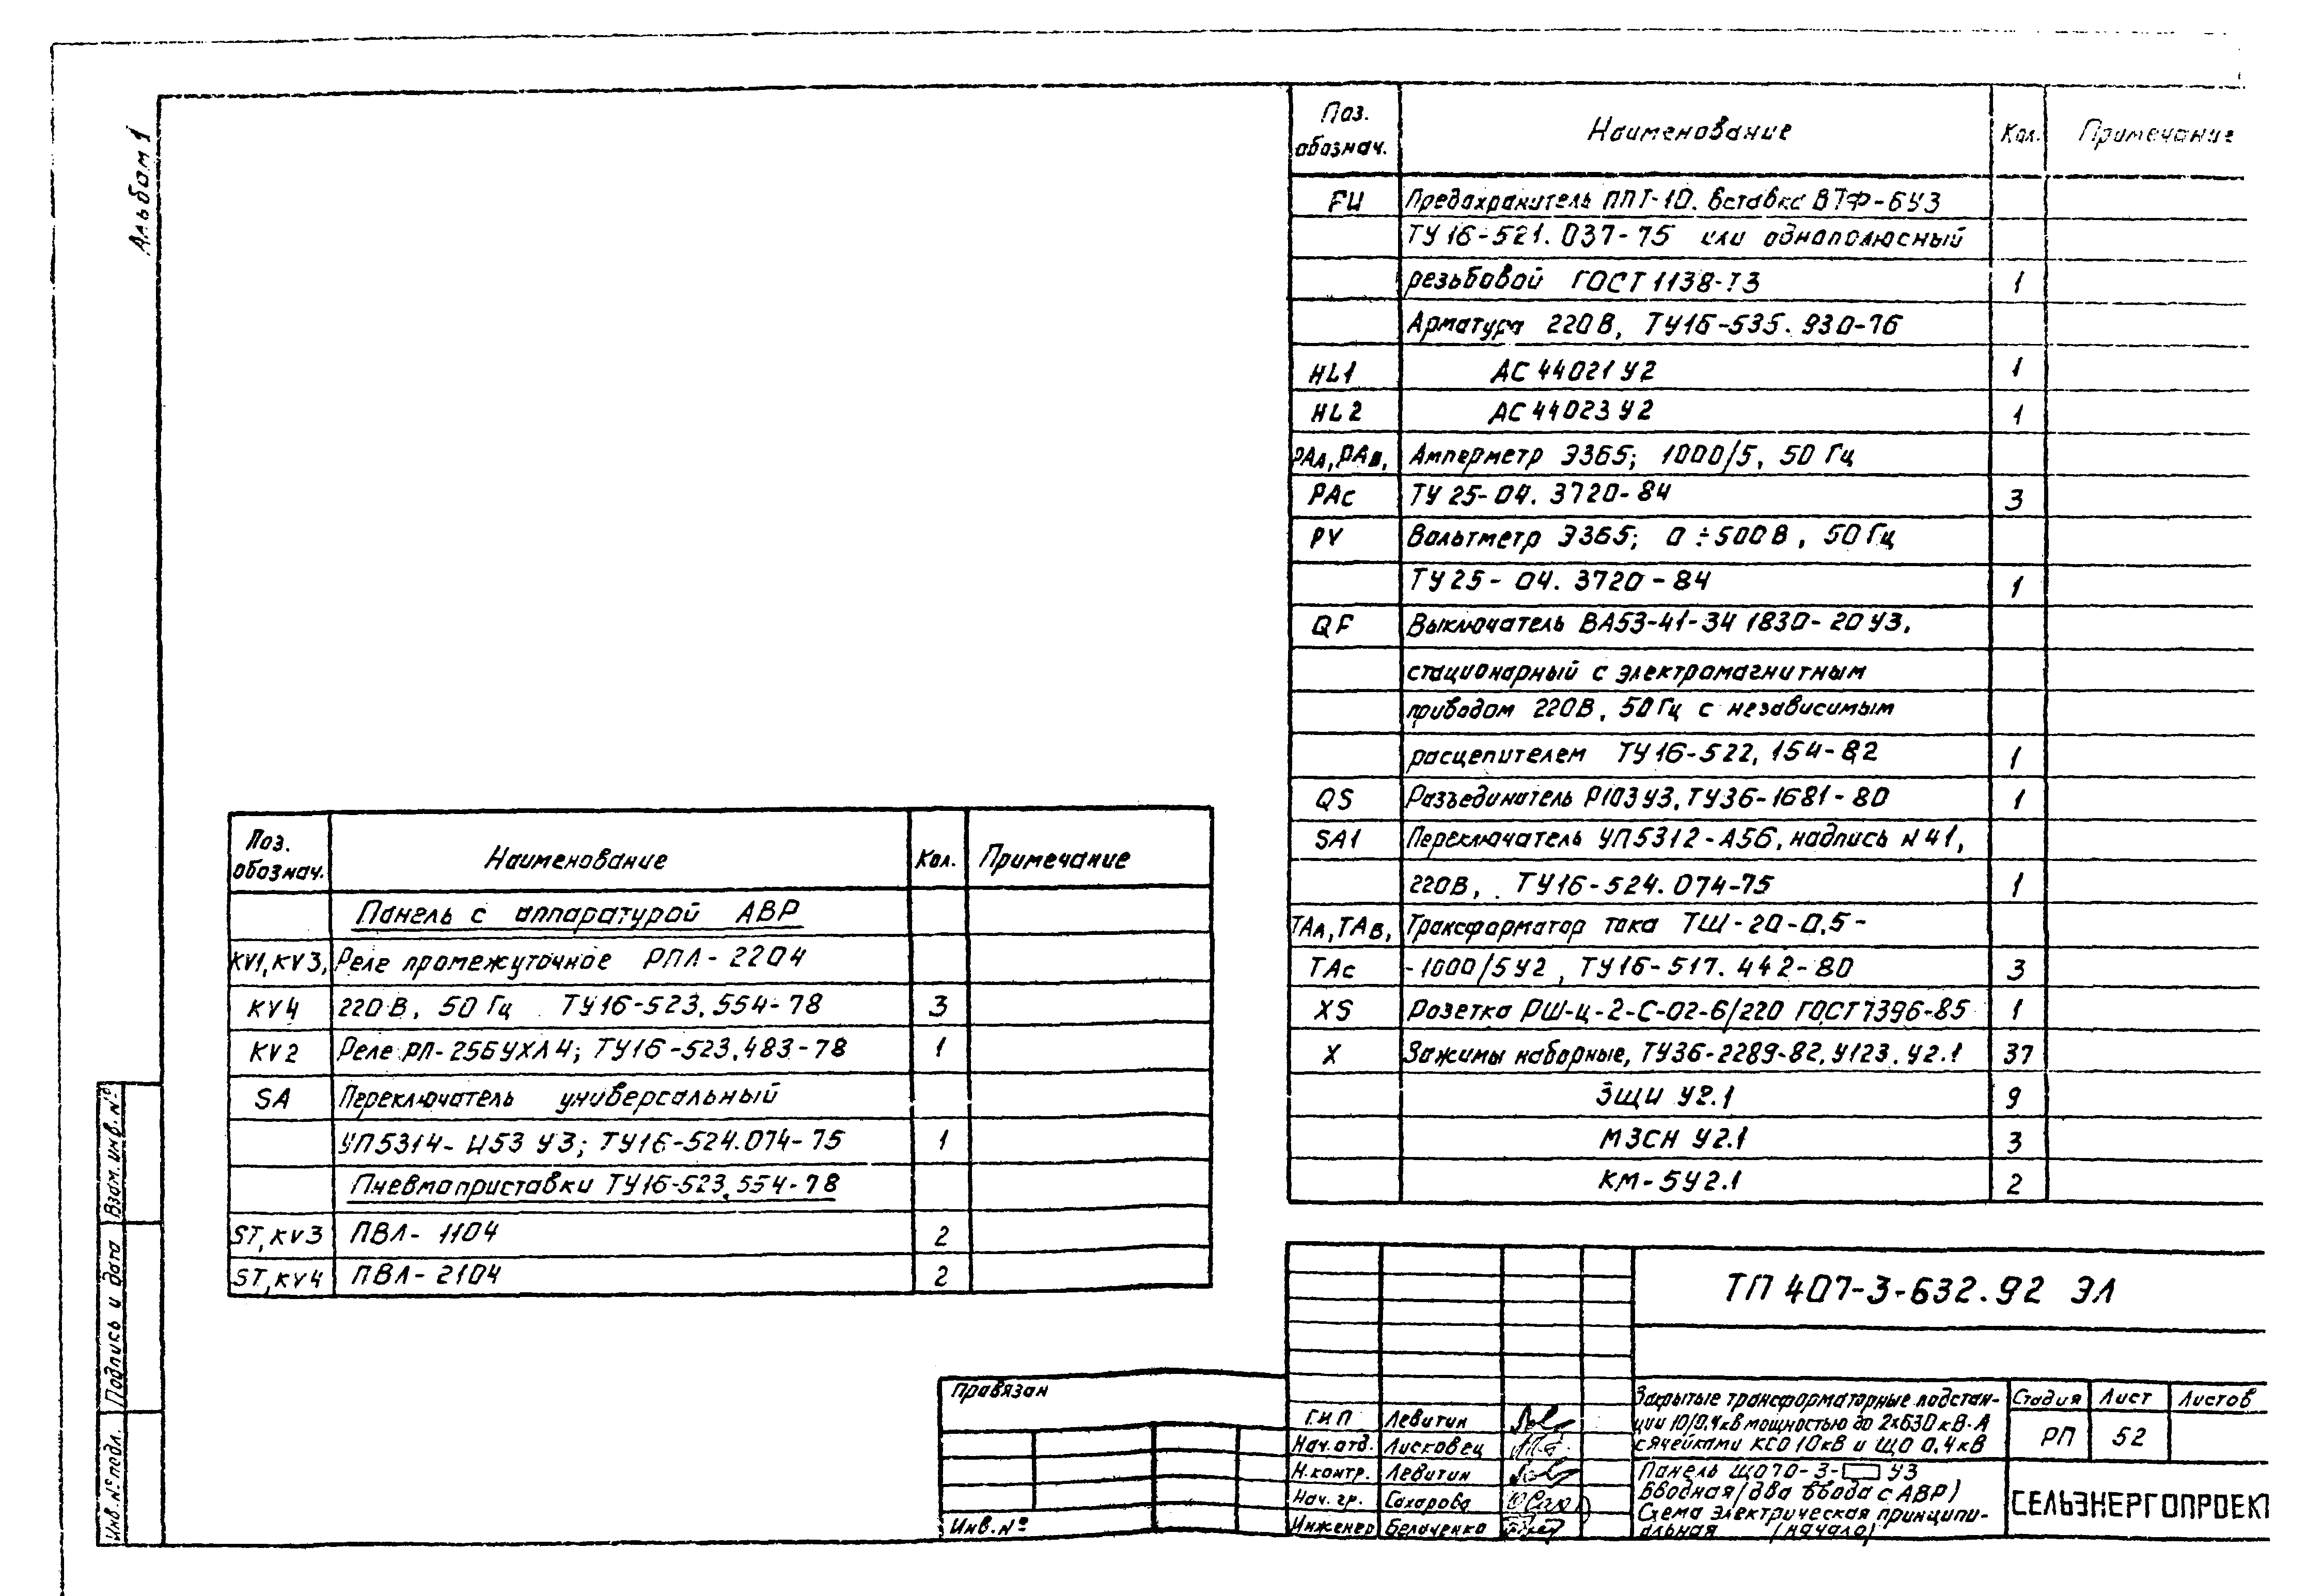 Альбом 1
Поз. обознач. Наименование Кол. Примечание
FU Предохранитель ППТ-10. Вставка ВТФ-6У3
ТУ 16-521.037-75 или однополюсный
резьбовой ГОСТ 1138-73 1
Арматура 220 В, ТУ16-535.930-76
HL1 АС 44021 У2 1
HL2 АС 44023 У2 1
РАА, РАВ, Амперметр Э365; 1000/5, 50 Гц
РАС ТУ 25-04.3720-84 3
PV Вольтметр Э365; 0÷500 В, 50 Гц
ТУ 25-04.3720-84 1
QF Выключатель ВА53-41-34 1830-20 У3,
стационарный с электромагнитным
приводом 220 В, 50 Гц с независимым
расцепителем ТУ 16-522,154-82 1
QS Разъединитель Р103 У3, ТУ36-1681-80 1
SA1 Переключатель УП5312-А56, надпись N 41,
220В, ТУ16-524.074-75 1
ТАА, ТАВ, Трансформатор тока ТШ-20-0,5-
ТАС -1000/5 У2, ТУ16-517.442-80 3
XS Розетка РШ-ц-2-С-02-6/220 ГОСТ 7396-85 1
X Зажимы наборные, ТУ36-2289-82, У123.У2.1 37
ЗЩИ У2.1 9
МЗСН У2.1 3
КМ-5У2.1 2
Поз. обознач. Наименование Кол. Примечание
Панель с аппаратурой АВР
KV1, KV3, Реле промежуточное РПЛ-2204
KV4 220 В, 50 Гц ТУ16-523,554-78 3
KV2 Реле РП-256 УХЛ 4; ТУ16-523,483-78 1
SA Переключатель универсальный
УП5314-И53 У3; ТУ16-524.074-75 1
Пневмоприставки ТУ16-523,554-78
ST, KV3 ПВЛ-1104 2
ST, KV4 ПВЛ-2104 2
Взам. инв. №
Подпись и дата
Инв. № подл.
Привязан
Инв. №
ТП 407-3-632.92 ЭЛ
ГИП Левитин
Нач. отд. Лисковец
Н. контр. Левитин
Нач. гр. Сахарова
Инженер
Закрытые трансформаторные подстан-
ции 10/0,4 кВ мощностью до 2х630 кВ·А
с ячейками КСО 10 кВ и ЩО 0,4 кВ
Стадия Лист Листов
РП 52
Панель ЩО70-3- У3
Вводная (два ввода с АВР)
Схема электрическая принципи-
альная (начало)
СЕЛЬЭНЕРГОПРОЕКТ